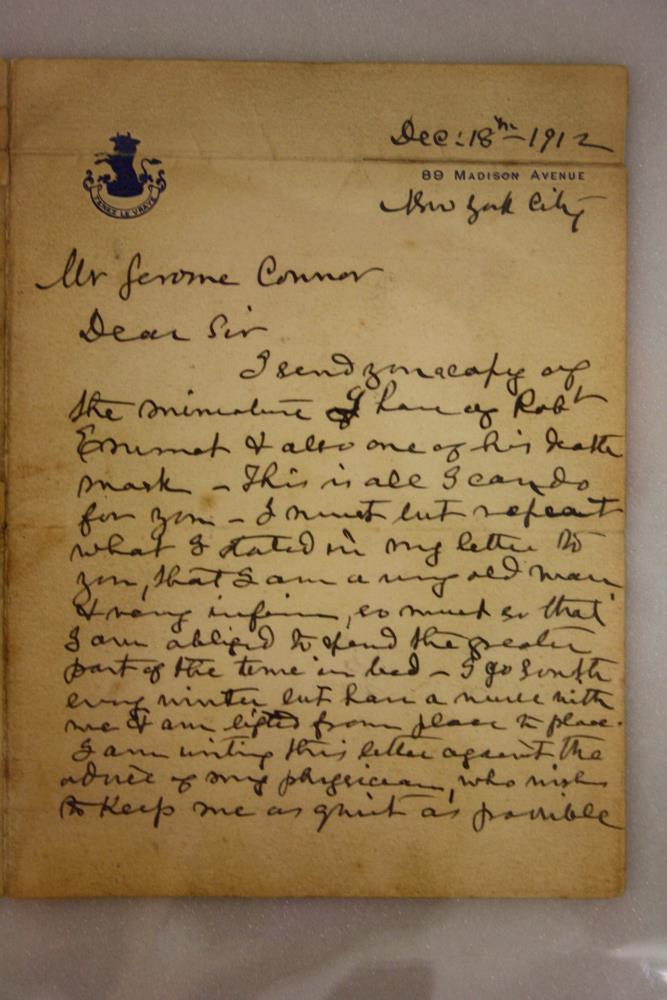 Dec: 18th - 1912
TENEZ LE VRAYE
89 MADISON AVENUE
New York City
Mr Jerome Connor
Dear Sir
I send you a copy of
the miniature I have of Robt
Emmet & also one of his death
mask - This is all I can do
for you - I must but repeat
what I stated in my letter to
you, that I am a very old man
& very infirm, so much so that
I am obliged to spend the greater
part of the time in bed - I go South
every winter but have a nurse with
me & am lifted from place to place.
I am writing this letter against the
advice of my physician, who wishes
to keep me as quiet as possible